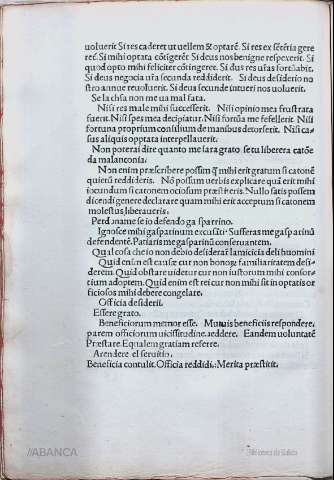 uoluerit Si res caderet ut uellem & optarē. Si res ex sētētia gere
ret. Si mihi optata cōtigerēt Si deus nos benigne respexerit. Si
quod opto mihi feliciter cōtingeret. Si dus res uras fortūabit.
Si deus negocia ura secunda reddiderit. Si deus desiderio no
stro annue reuoluerit. Si deus secunde intueri nos uoluerit.
Se la chsa non me ua mal fata.
Nisi res male mihi successerit. Nisi opinio mea frustrata
fuerit. Nisi spes mea decipiatur. Nisi fortūa me fefellerit. Nisi
fortuna proprium consilium de manibus detorserit. Nisi ca
sus aliquis optata interpellauerit.
Non poterai dire quanto me sara grato se tu libererа catōe
da malanconia.
Non enim præscribere possum q̄ mihi erit gratum si catonē
quietū reddideris. Nō possum uerbis explicare quā erit mihi
iocundum si catonem ociosum præstiteris. Nullo satis possem
dicendi genere declarare quam mihi erit acceptum si catonem
molestus liberaueris.
Perdoname se io defendo gasparrino.
Ignosce mihi gasparinum excusāti. Sufferas me gasparinū
defendentē. Patiaris me gasparinū conseruantem.
Qual cosa che io non debio desiderar lamicicia deli huomini
Quid enim est causæ cur non bonoꝝ familiaritatem desi-
derem. Quid obstare uidetur cur non iustorum mihi consor-
tium adoptem. Quid enim est rei cur non mihi sit in optatis or
ficiosos mihi debere congelare.
Officia desiderii.
Essere grato.
Beneficiorum memor esse. Mutuis beneficiis respondere,
parem officiorum uicissitudine. reddere. Eandem uoluntatē
Præstare. Equalem gratiam referre.
A rendere el seruitio.
Beneficia contulit. Officia reddidi. Merita præstitit.
//ABANCA
Biblioteca de Galicia